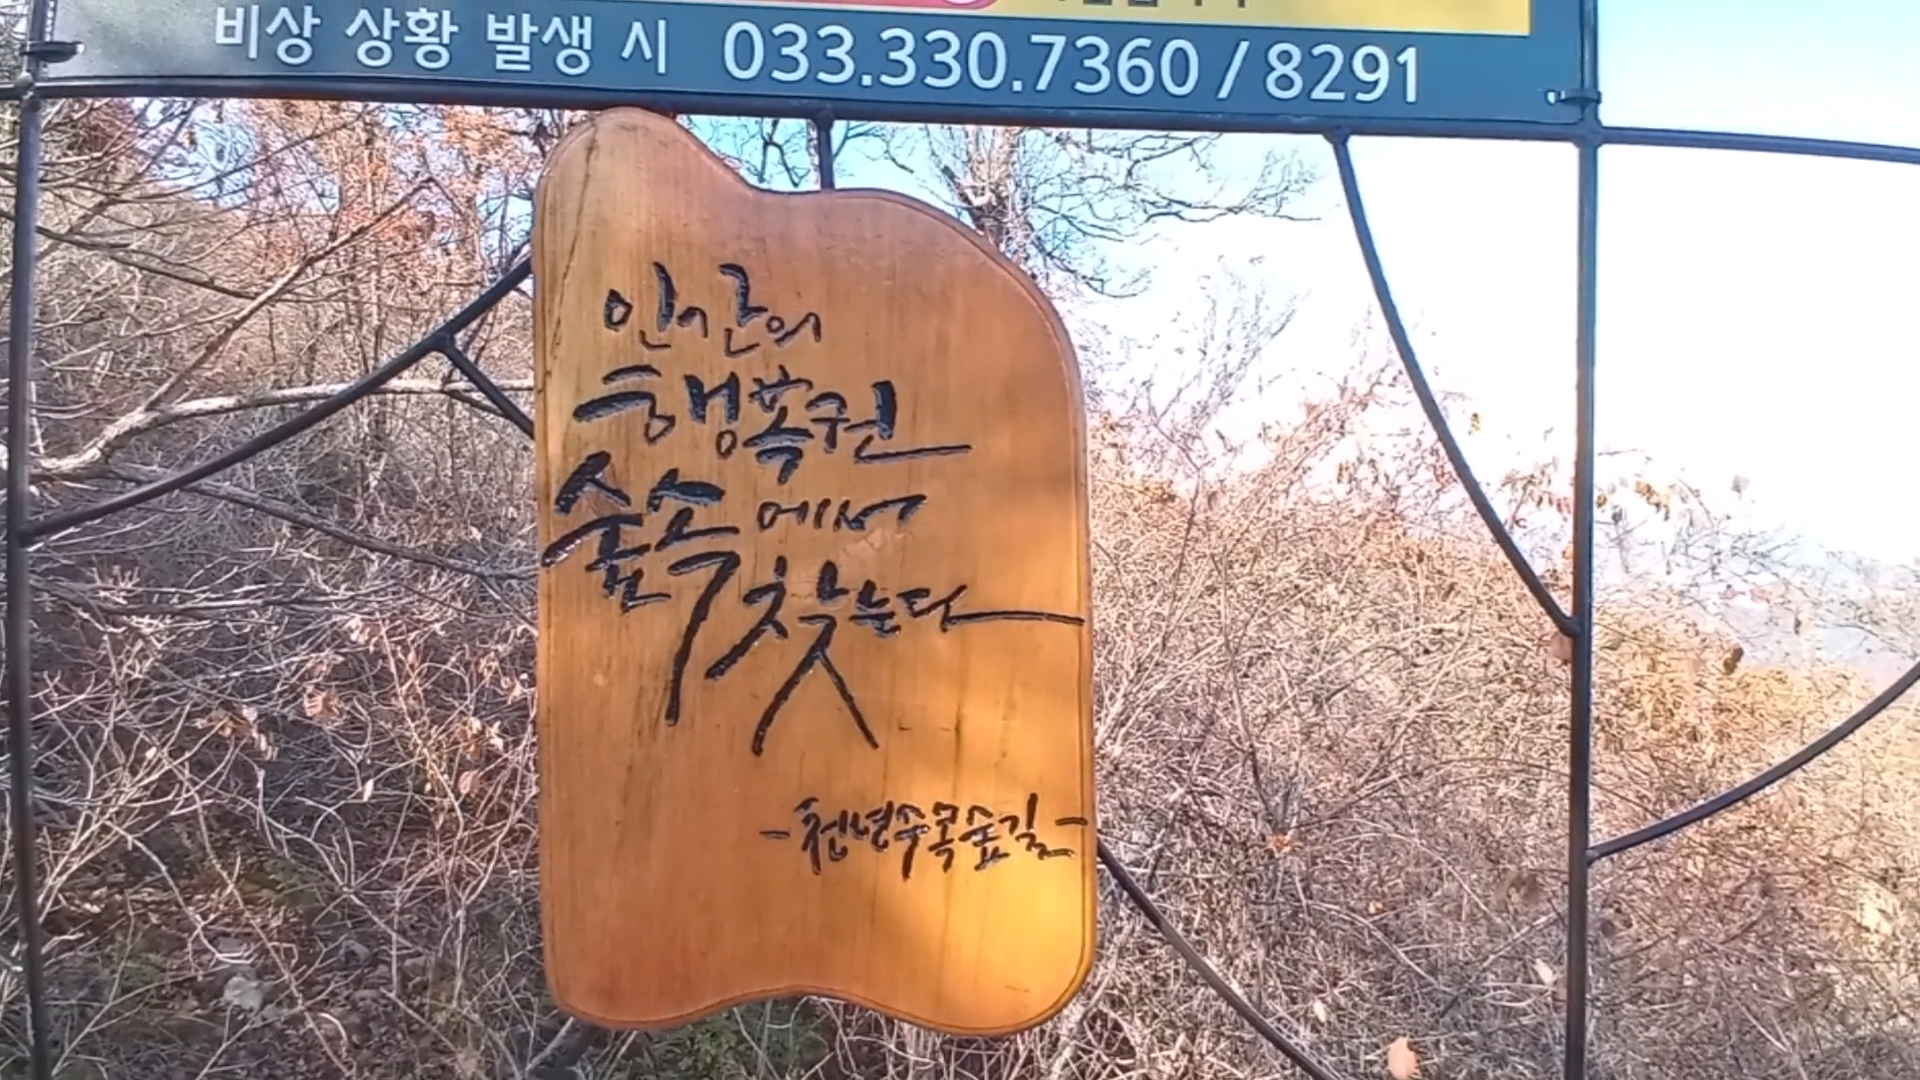 비상 상황 발생 시 033.330.7360 / 8291
인간의
행복권
숲속에서
찾는다
-천년수목숲길-